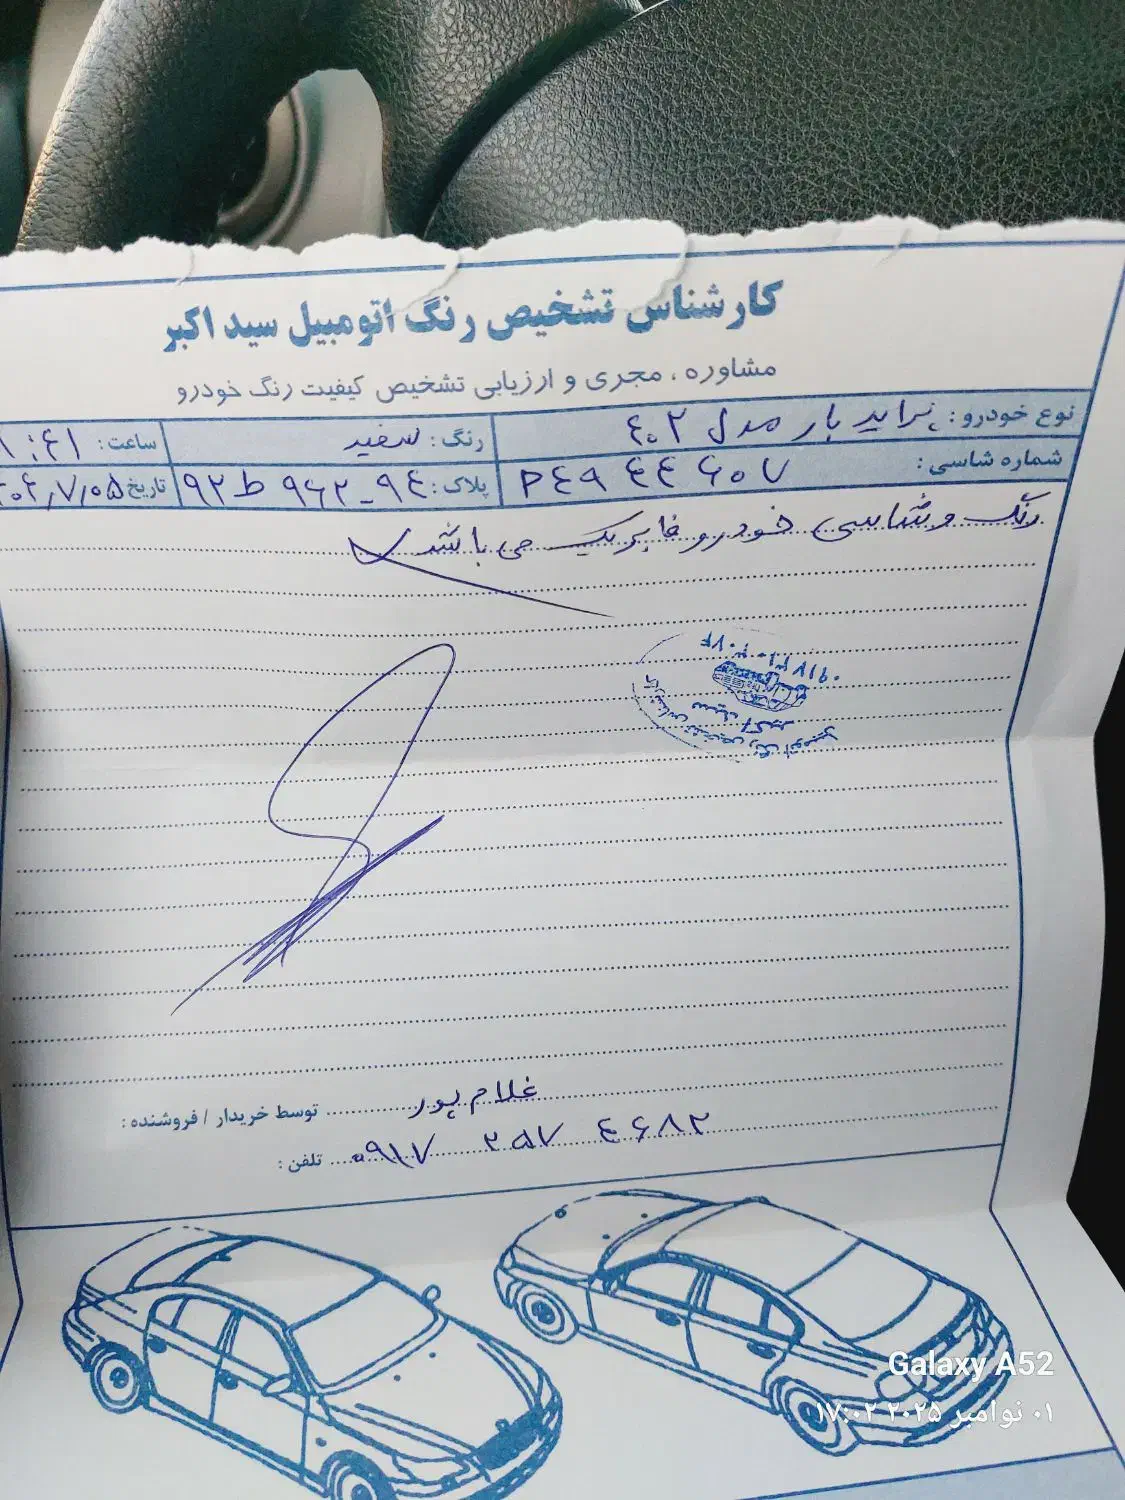 کارشناس تشخیص رنگ اتومبیل سید اکبر
مشاوره ، مجری و ارزیابی تشخیص کیفیت رنگ خودرو
نوع خودرو: پراید بار مدل ۴۰۲ رنگ: سفید ساعت: ۱۰:۴۱
شماره شاسی: P۴۹ ۴۴ ۶۰۷ پلاک: ۹۲ط ۹۶۲-۹۴ تاریخ ۴۰۴/۷/۰۵
رنگ و شاسی خودرو فابریک می باشد
۰۹۱۷۳۱۰۲۰۷۴
سید اکبر
کارشناس تشخیص رنگ اتومبیل
توسط خریدار / فروشنده: غلام پور
تلفن: ۰۹۱۷ ۲۵۷ ۴۶۸۲
Galaxy A52
۰۱ نوامبر ۲۰۲۵ ۱۷:۰۲